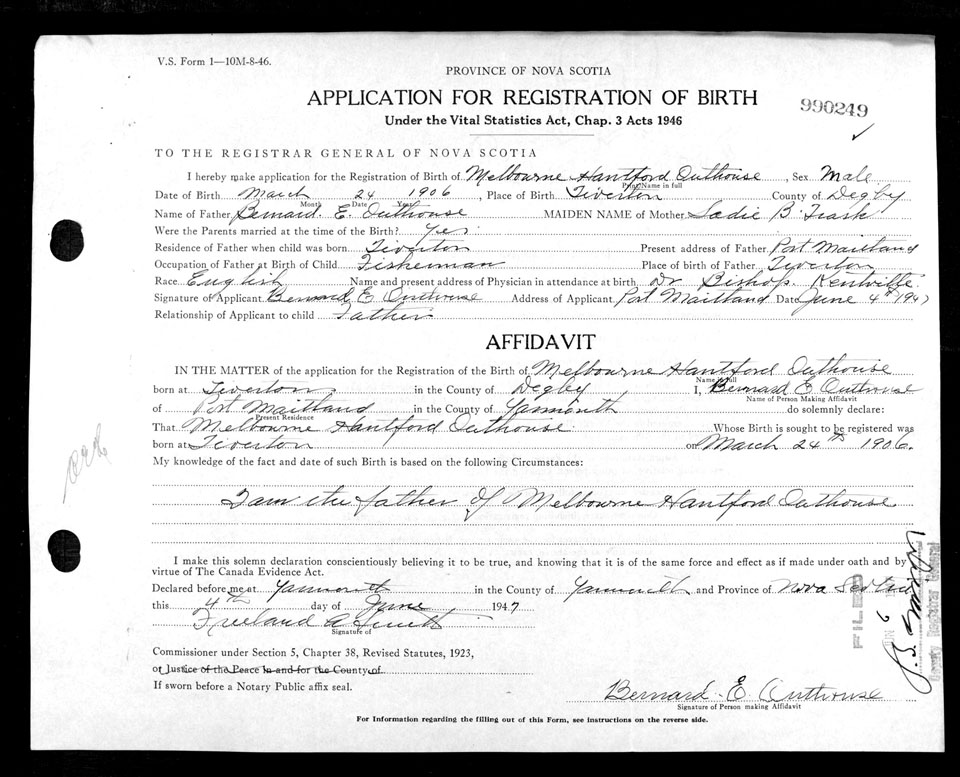 V.S. Form 1—10M-8-46.
PROVINCE OF NOVA SCOTIA
APPLICATION FOR REGISTRATION OF BIRTH
990249
Under the Vital Statistics Act, Chap. 3 Acts 1946
TO THE REGISTRAR GENERAL OF NOVA SCOTIA
I hereby make application for the Registration of Birth of Melbourne Hantford Outhouse, Sex Male
Print Name in full
Date of Birth March 24 1906, Place of Birth Tiverton County of Degby
Month Date Year
Name of Father Bernard E. Outhouse MAIDEN NAME of Mother Sadie B. Trask
Were the Parents married at the time of the Birth? Yes
Residence of Father when child was born Tiverton Present address of Father Port Maitland
Occupation of Father at Birth of Child Fisherman Place of birth of Father Tiverton
Race English Name and present address of Physician in attendance at birth Dr Bishop. Kentville
Signature of Applicant Bernard E Outhouse Address of Applicant Port Maitland Date June 4th 1947
Relationship of Applicant to child Father
AFFIDAVIT
IN THE MATTER of the application for the Registration of the Birth of Melbourne Hantford Outhouse
Name in full
born at Tiverton in the County of Degby I, Bernard E Outhouse
Name of Person Making Affidavit
of Port Maitland in the County of Yarmouth do solemnly declare:
Present Residence
That Melbourne Hantford Outhouse Whose Birth is sought to be registered was
born at Tiverton on March 24th 1906.
My knowledge of the fact and date of such Birth is based on the following Circumstances:
I am the father of Melbourne Hantford Outhouse
I make this solemn declaration conscientiously believing it to be true, and knowing that it is of the same force and effect as if made under oath and by
virtue of The Canada Evidence Act.
Declared before me at Yarmouth in the County of Yarmouth and Province of Nova Scotia
this 4th day of June 1947
Freeland A Smith
Signature of
Commissioner under Section 5, Chapter 38, Revised Statutes, 1923,
or Justice of the Peace in and for the County of
If sworn before a Notary Public affix seal.
Bernard E. Outhouse
Signature of Person making Affidavit
For Information regarding the filling out of this Form, see instructions on the reverse side.
FILED
Deputy Registrar General